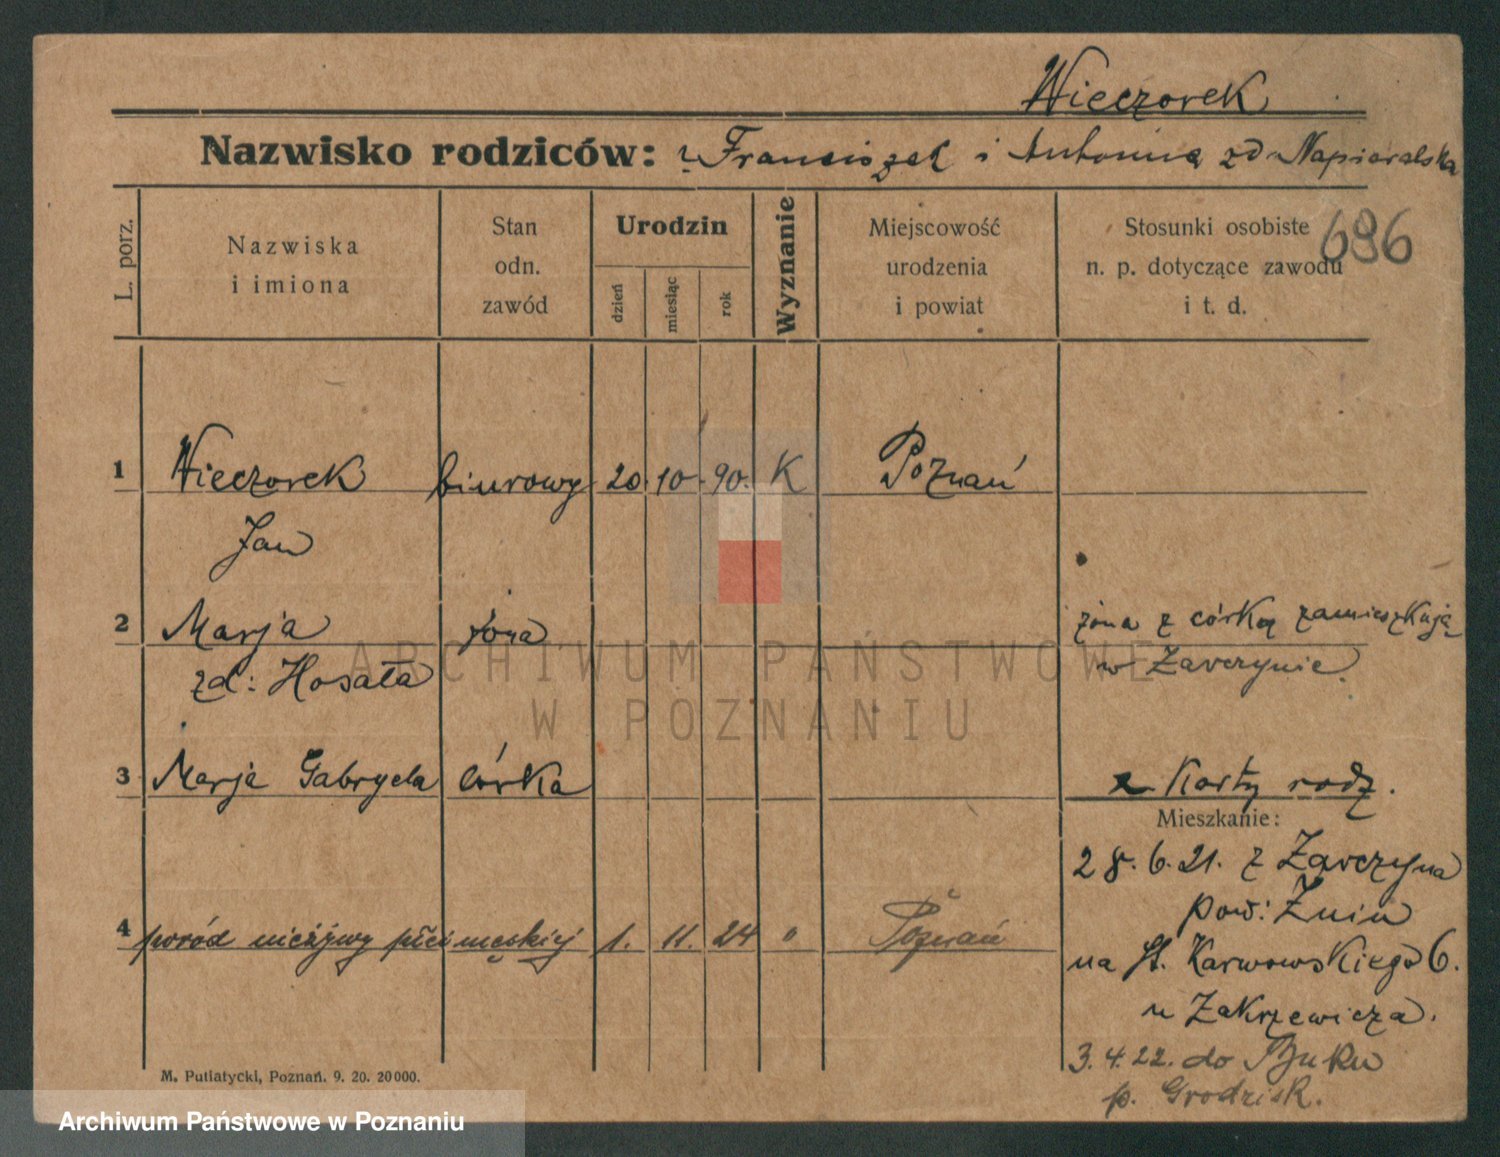 Wieczorek
Nazwisko rodziców: Franciszek i Antonina zd Napieralska
L. porz.
Nazwiska
i imiona
Stan
odn.
zawód
Urodzin
dzień
miesiąc
rok
Wyznanie
Miejscowość
urodzenia
i powiat
Stosunki osobiste
n. p. dotyczące zawodu
i t. d.
696
1 Wieczorek biurowy 20. 10. 90. K Poznań
Jan
2 Marja żona żona z córką zamieszkują
zd: Hosała w Zavczynie.
3 Marja Gabryela córka z Karty rodz.
Mieszkanie:
28.6.21. z Zavczyna
pow: Żnin
4 poród nieżywy płci męskiej 1. 11. 24 " Poznań
na St. Karwowskiego 6.
u Zakrzewicza.
3.4.22. do Buku
p. Grodzisk.
M. Putiatycki, Poznań. 9. 20. 20000.
ARCHIWUM PAŃSTWOWE
W POZNANIU
Archiwum Państwowe w Poznaniu